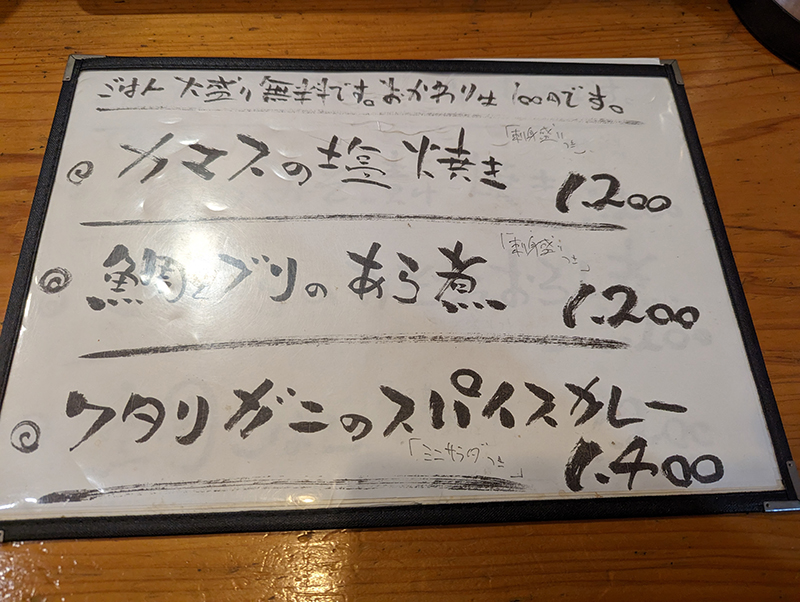 ごはん 大盛り無料です。おかわりは 100円です。
カマスの塩焼き 「刺身盛りつき」 1.200
鯛とブリのあら煮 「刺身盛りつき」 1.200
ワタリガニのスパイスカレー
「ミニサラダつき」 1.400